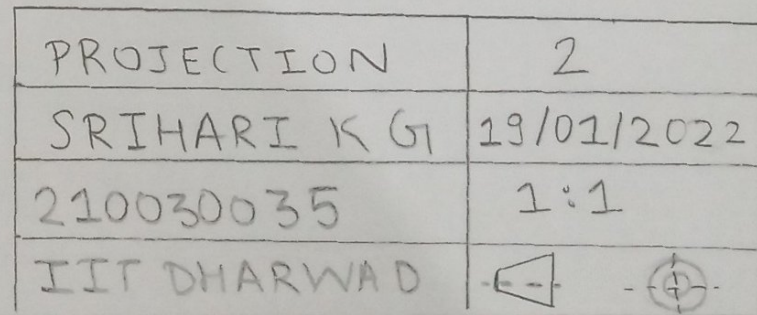 PROJECTION 2
SRIHARI K G 19/01/2022
210030035 1:1
IIT DHARWAD